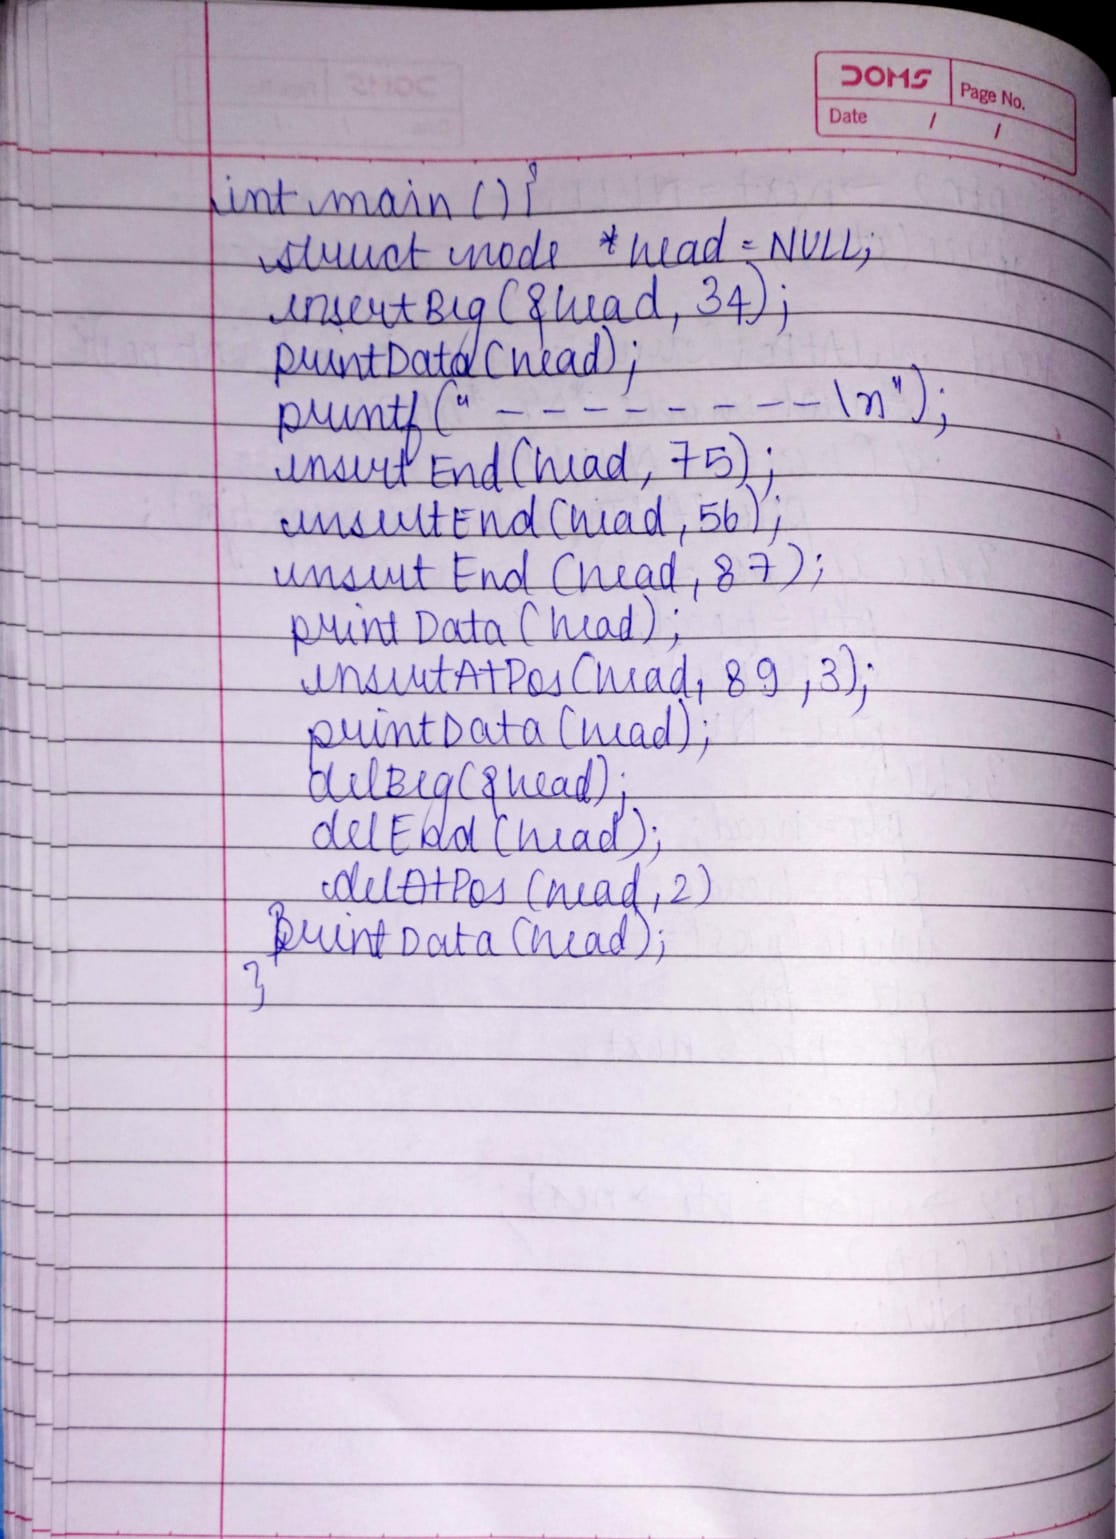 DOMS
Page No.
Date / /
int main () {
struct node *head = NULL;
insertBeg (&head, 34);
printData (head);
printf (" - - - - - - - - - \n");
insert End (head, 75);
insertEnd (head, 56);
insert End (head, 87);
print Data (head);
insertAtPos (head, 89, 3);
printData (head);
delBeg (&head);
delEnd (head);
delAtPos (head, 2)
printData (head);
}